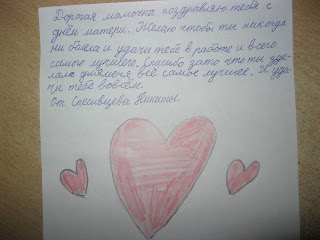 Дорогая мамочка поздравляю тебя с
днём матери. Желаю чтобы ты никогда
ни болела и удачи тебе в работе и всего
самое лучшего. Спасибо зато что ты зде-
лала длямоня, всё самое лучшее. И уда-
чи тебе вовсём.
От Спесивцева Никиты.